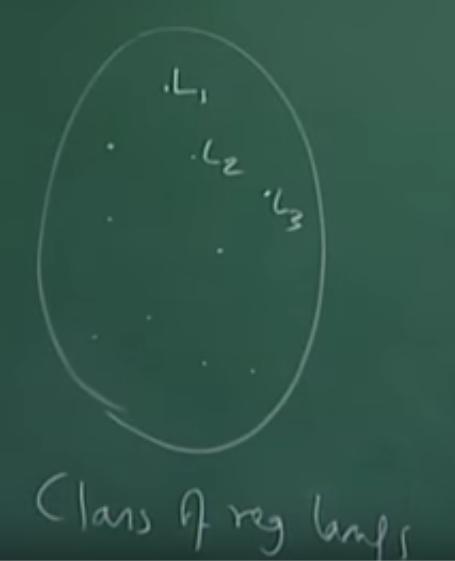 .L₁
.L₂
.L₃
Class of reg langs